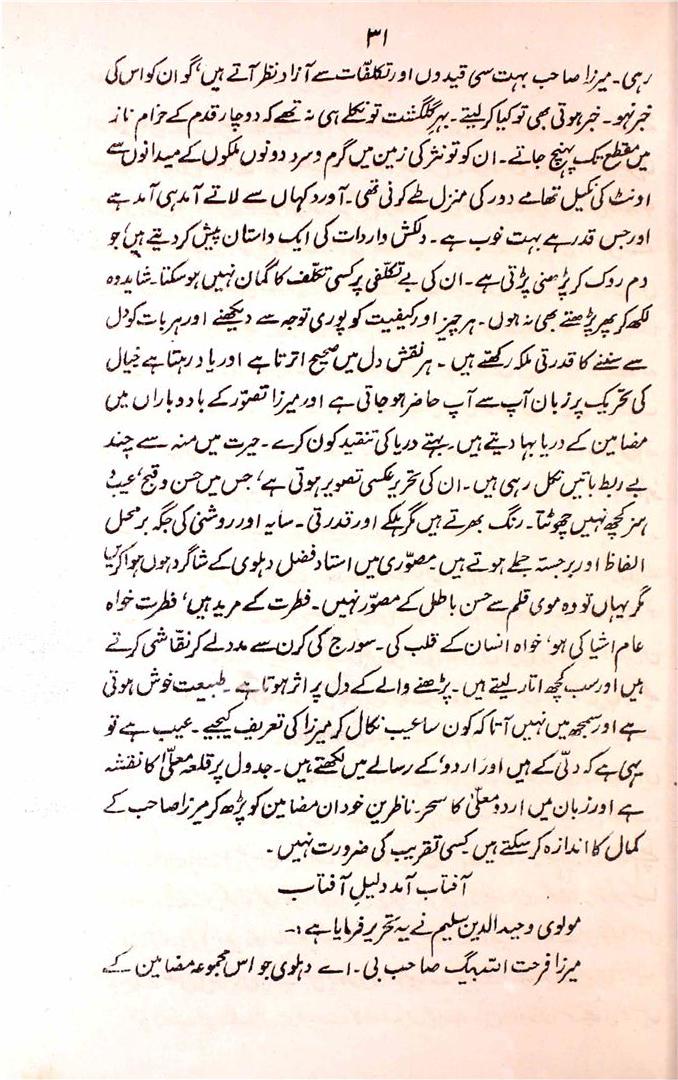 ۳۱
رہی۔ میرزا صاحب بہت سی قیدوں اور تکلفات سے آزاد نظر آتے ہیں، گو ان کو اس کی
خبر نہو۔ خبر ہوتی بھی تو کیا کر لیتے۔ بہر گلگشت تو نکلے ہی نہ تھے کہ دو چار قدم کے خرام ناز
میں مقطع تک پہنچ جاتے۔ ان کو تو نثر کی زمین میں گرم و سرد دونوں ملکوں کے میدانوں سے
اونٹ کی نکیل تھامے دور کی منزل طے کرنی تھی۔ آورد کہاں سے لاتے آمد ہی آمد ہے
اور جس قدر ہے بہت خوب ہے۔ دلکش واردات کی ایک داستان پیش کر دیتے ہیں، جو
دم روک کر پڑھنی پڑتی ہے۔ ان کی بے تکلفی پر کسی تکلف کا گمان نہیں ہو سکتا۔ شاید وہ
لکھ کر پھر پڑھتے بھی نہ ہوں۔ ہر چیز اور کیفیت کو پوری توجہ سے دیکھنے اور ہر بات کو دل
سے سننے کا قدرتی ملکہ رکھتے ہیں۔ ہر نقش دل میں صحیح اترتا ہے اور یاد رہتا ہے خیال
کی تحریک پر زبان آپ سے آپ حاضر ہو جاتی ہے اور میرزا تصوّر کے باد و باراں میں
مضامین کے دریا بہا دیتے ہیں۔ بہتے دریا کی تنقید کون کرے۔ حیرت میں منہ سے چند
بے ربط باتیں نکل رہی ہیں۔ ان کی تحریر عکسی تصویر ہوتی ہے، جس میں حسن و قبح، عیب و
ہنر کچھ نہیں چھوٹتا۔ رنگ بھرتے ہیں مگر ہلکے اور قدرتی۔ سایہ اور روشنی کی جگہ بر محل
الفاظ اور برجستہ جملے ہوتے ہیں مصوّری میں استاد فضل دہلوی کے شاگرد ہوں ہوا کریں
مگر یہاں تو وہ موی قلم سے حسن باطل کے مصوّر نہیں۔ فطرت کے مرید ہیں، فطرت خواہ
عام اشیا کی ہو، خواہ انسان کے قلب کی۔ سورج کی کرن سے مدد لے کر نقاشی کرتے
ہیں اور سب کچھ اتار لیتے ہیں۔ پڑھنے والے کے دل پر اثر ہوتا ہے۔ طبیعت خوش ہوتی
ہے اور سمجھ میں نہیں آتا کہ کون سا عیب نکال کر میرزا کی تعریف کیجیے۔ عیب ہے تو
یہی ہے کہ دلّی کے ہیں اور اردو کے رسالے میں لکھتے ہیں۔ جدول پر قلعہ معلّٰی کا نقشہ
ہے اور زبان میں اردوۓ معلّٰی کا سحر۔ ناظرین خود ان مضامین کو پڑھ کر میرزا صاحب کے
کمال کا اندازہ کر سکتے ہیں کسی تقریب کی ضرورت نہیں۔
آفتاب آمد دلیل آفتاب
مولوی وحید الدین سلیم نے یہ تحریر فرمایا ہے :۔
میرزا فرحت اللہ بیگ صاحب بی۔ اے دہلوی جو اس مجموعہ مضامین کے